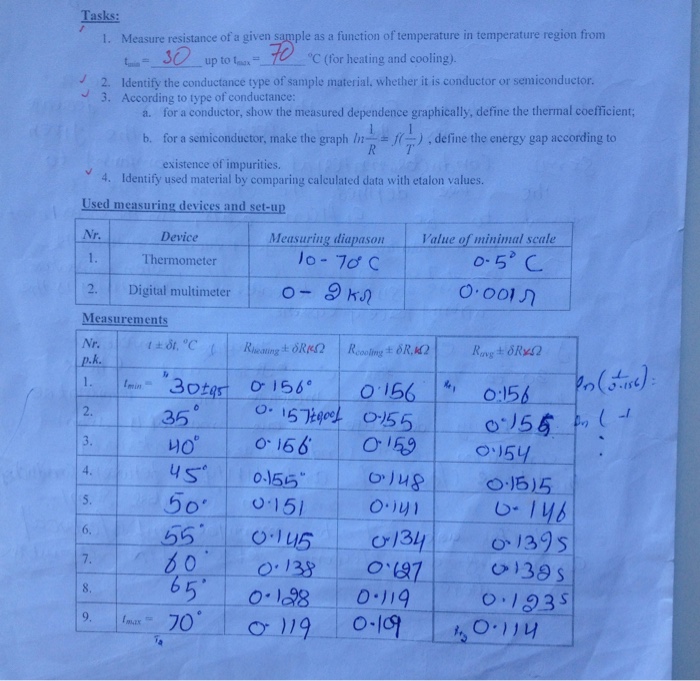 Tasks:
1. Measure resistance of a given sample as a function of temperature in temperature region from
tmin= 30 up to tmax= 70 °C (for heating and cooling).
2. Identify the conductance type of sample material, whether it is conductor or semiconductor.
3. According to type of conductance:
a. for a conductor, show the measured dependence graphically, define the thermal coefficient;
b. for a semiconductor, make the graph ln 1/R = f(1/T), define the energy gap according to
existence of impurities.
4. Identify used material by comparing calculated data with etalon values.
Used measuring devices and set-up
Nr. Device Measuring diapason Value of minimal scale
1. Thermometer 10-70°C 0.5° C
2. Digital multimeter 0- 2 KΩ 0.001Ω
Measurements
Nr. p.k. t ± δt, °C Rheating ± δR,KΩ Rcooling ± δR,KΩ Ravg ± δR,KΩ
1. tmin = 30±0.5 0.156 0.156 0.156 ln(1/0.156):
2. 35° 0.157±0.001 0.155 0.156 ln(-1
3. 40° 0.156 0.152 0.154 :
4. 45° 0.155 0.148 0.1515
5. 50° 0.151 0.141 0.146
6. 55° 0.145 0.134 0.1395
7. 60° 0.138 0.127 0.1325
8. 65° 0.128 0.119 0.1235
9. tmax = 70° 0.119 0.109 0.114